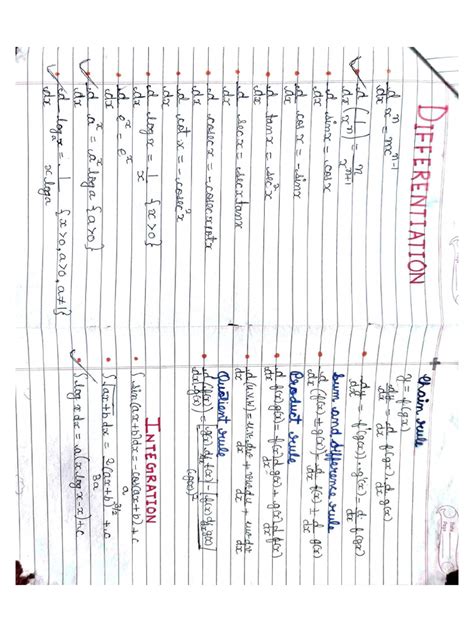 DIFFERENTIATION
d/dx x^n = nx^(n-1)
d/dx (1/x^n) = n/x^(n+1)
d/dx sinx = cosx
d/dx cosx = -sinx
d/dx tanx = sec²x
d/dx secx = secxtanx
d/dx cosecx = -cosecxcotx
d/dx cotx = -cosec²x
d/dx logx = 1/x {x>0}
d/dx e^x = e^x
d/dx a^x = a^x loga {a>0}
d/dx log_a x = 1/(x loga) {x>0, a>0, a≠1}
Chain rule
y = f(gx)
dy/dx = d/dx f(gx). d/dx g(x)
dy/dx = f'(g(x)).g'(x) = d/dx f(gx)
Sum and difference rule
d/dx (f(x) ± g(x)) = d/dx f(x) ± d/dx g(x)
Product rule
d/dx f(x)g(x) = f(x) d/dx g(x) + g(x) d/dx f(x)
d/dx (u.v.w) =
Quotient rule
INTEGRATION
∫sin(ax+b)dx = -cos(ax+b)/a + c
∫√(ax+b) dx = 2(ax+b)^(3/2)/3a + c
∫log x dx = a(x log x - x) + c